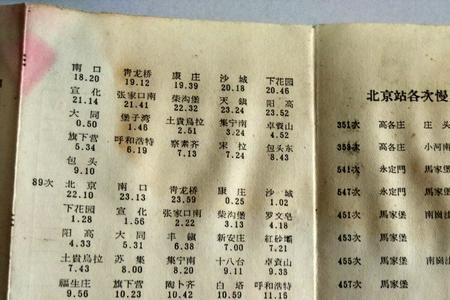 南口 青龙桥 康庄 沙城 下花园
18.20 19.12 19.39 20.18 20.46
宣化 张家口南 柴沟堡 天鎮 阳高
21.14 21.41 22.32 23.24 23.52
大同 堡子湾 土貴烏拉 集宁南 卓資山
0.50 1.46 2.51 3.24 4.52
旗下营 呼和浩特 察素齐 宋拉 包头东
5.34 6.19 7.13 7.24 8.43
包头
9.10
89次 北京 南口 青龙桥 康庄 沙城
22.10 23.13 23.59 0.25 1.02
下花园 宣化 张家口南 柴沟堡 罗文皂
1.28 1.56 2.22 3.13 4.18
阳高 大同 丰鎮 新安庄 紅砂壩
4.33 5.31 6.38 7.00 7.21
土貴烏拉 苏集 集宁南 十八台 卓資山
7.43 8.00 8.20 9.11 9.38
福生庄 旗下营 陶卜齐 白塔 呼和浩特
9.56 10.23 10.42 10.59 11.15
北京站各次慢
351次 高各庄 庄头
359次 高各庄 小河南
541次 永定門 馬家堡
547次 永定門 馬家堡
451次 馬家堡 南崗洼
453次 馬家堡
455次 馬家堡 南崗洼
457次 馬家堡